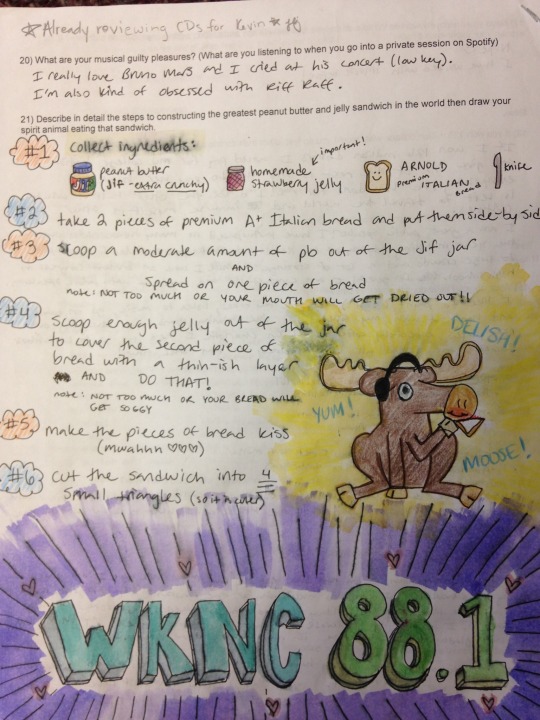 * Already reviewing CDs for Kevin *
20) What are your musical guilty pleasures? (What are you listening to when you go into a private session on Spotify)
I really love Bruno Mars and I cried at his concert (low key).
I'm also kind of obsessed with Riff Raff.
21) Describe in detail the steps to constructing the greatest peanut butter and jelly sandwich in the world then draw your
spirit animal eating that sandwich.
#1 collect ingredients:
important!
Jif peanut butter
(Jif - extra crunchy)
homemade
strawberry jelly
ARNOLD
premium ITALIAN bread
knife
#2 take 2 pieces of premium A+ Italian bread and put them side-by sid
#3 scoop a moderate amount of pb out of the Jif jar
AND
Spread on one piece of bread
note: NOT TOO MUCH OR YOUR MOUTH WILL GET DRIED OUT!!
#4 scoop enough jelly out of the jar
to cover the second piece of
bread with a thin-ish layer
AND DO THAT!
note: NOT TOO MUCH OR YOUR BREAD WILL
GET SOGGY
#5 make the pieces of bread kiss
(mwahhh ♡♡♡)
#6 cut the sandwich into 4
small triangles (so it's cuter)
DELISH!
YUM!
MOOSE!
WKNC 88.1